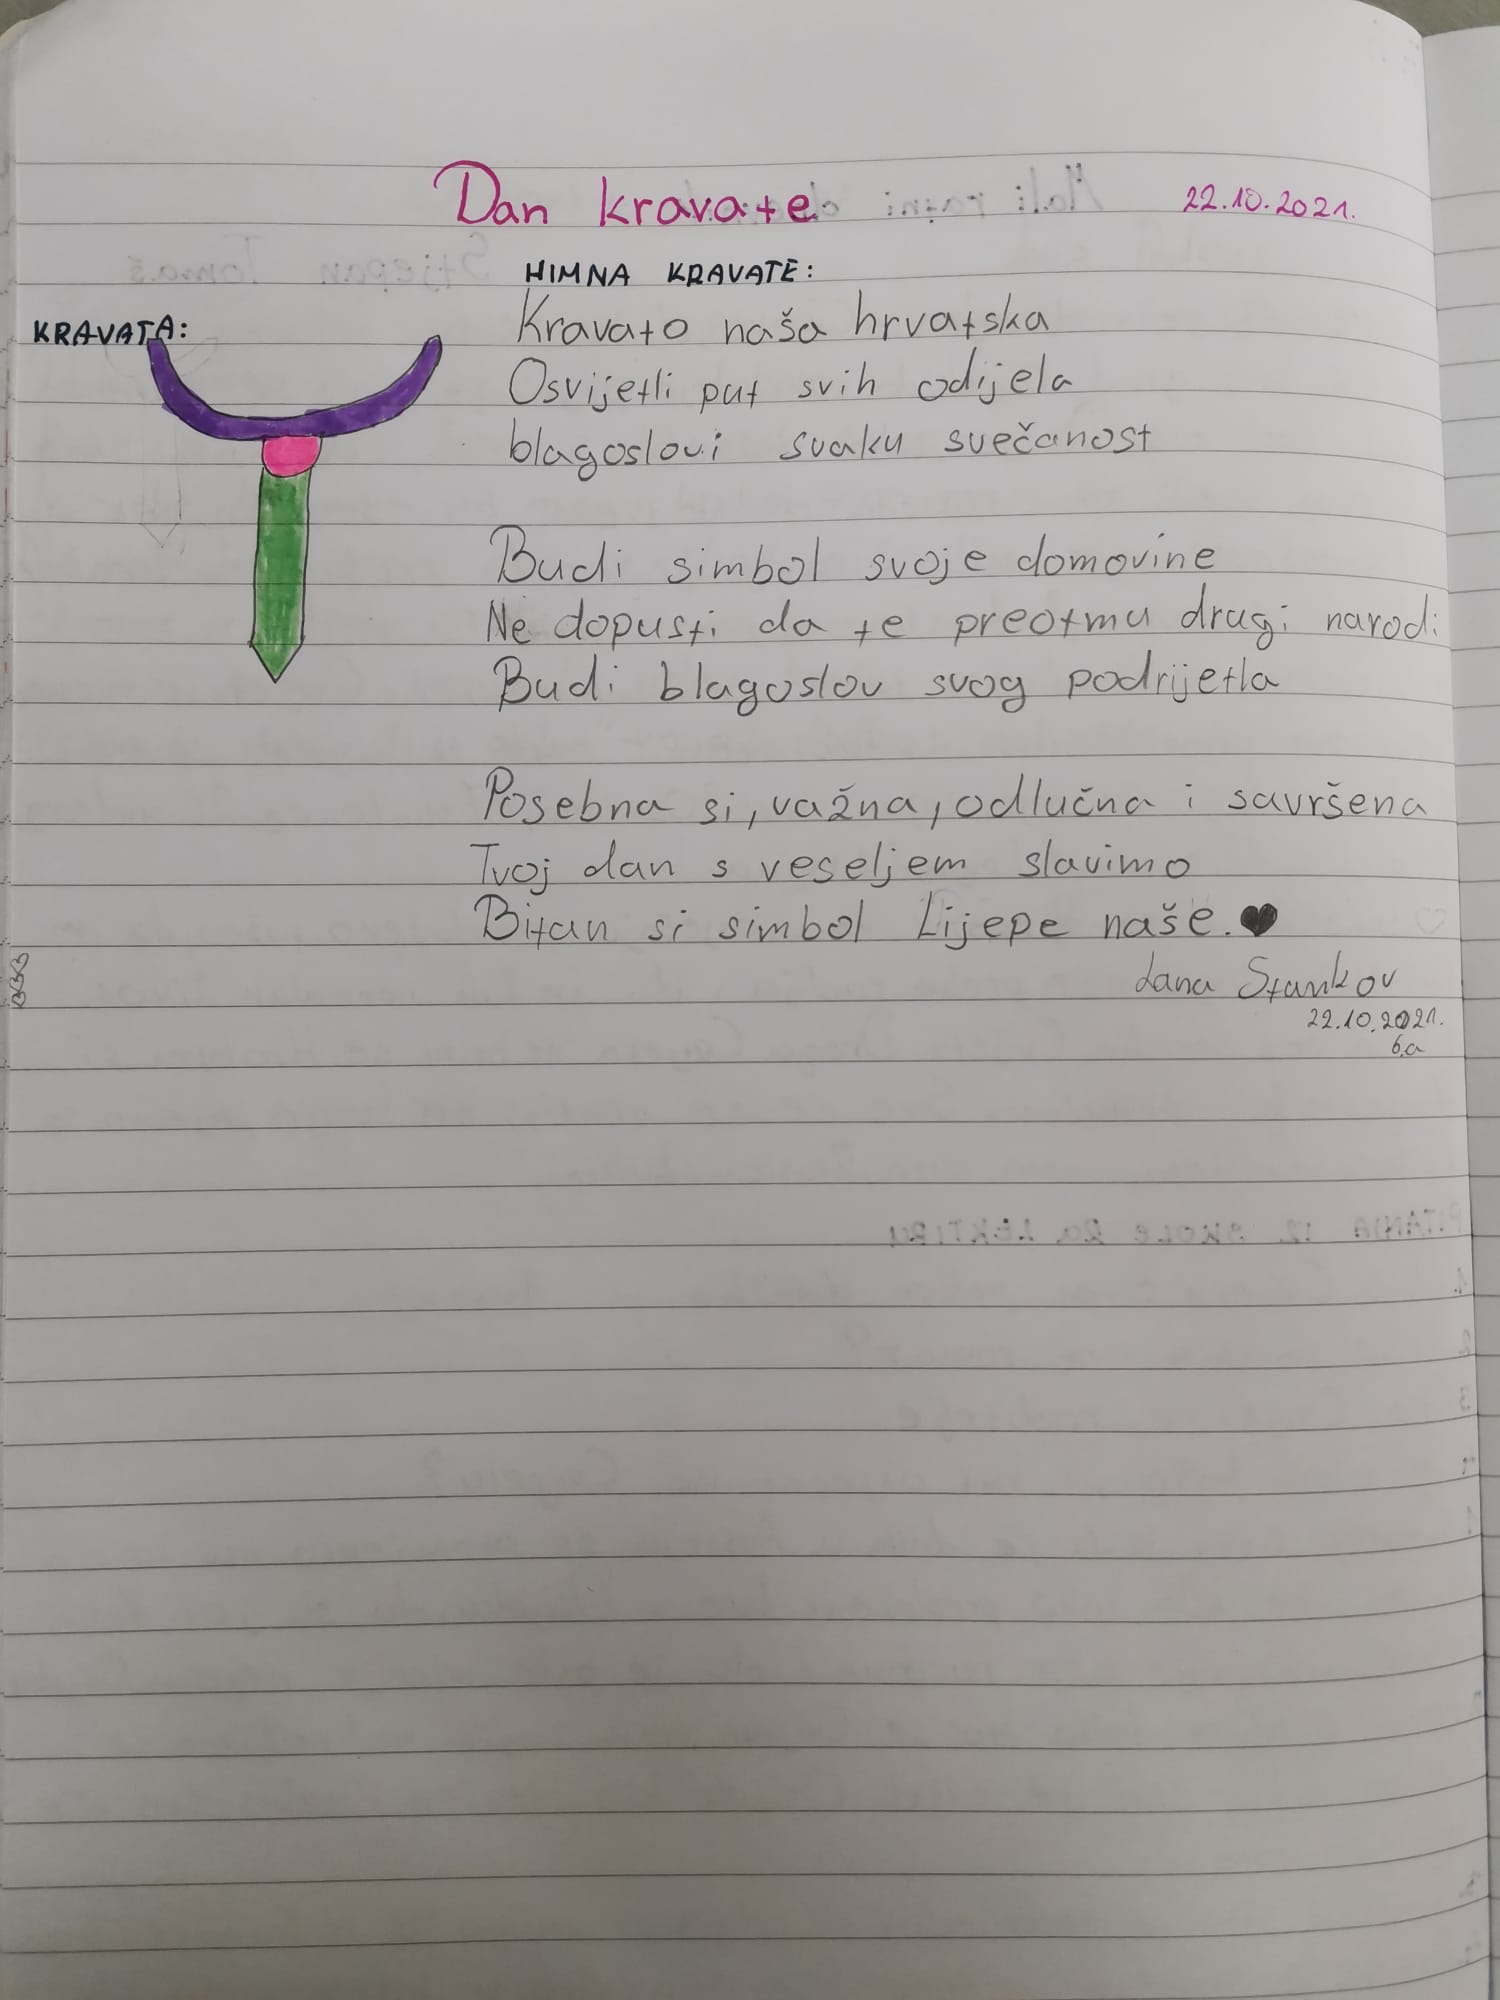 Dan kravate 22.10.2021.
HIMNA KRAVATE:
KRAVATA:
Kravato naša hrvatska
Osvijetli put svih odijela
blagoslovi svaku svečanost
Budi simbol svoje domovine
Ne dopusti da te preotmu drugi narodi
Budi blagoslov svog podrijetla
Posebna si, važna, odlučna i savršena
Tvoj dan s veseljem slavimo
Bitan si simbol Lijepe naše. ♥
Lana Stankov
22.10.2021.
6.a